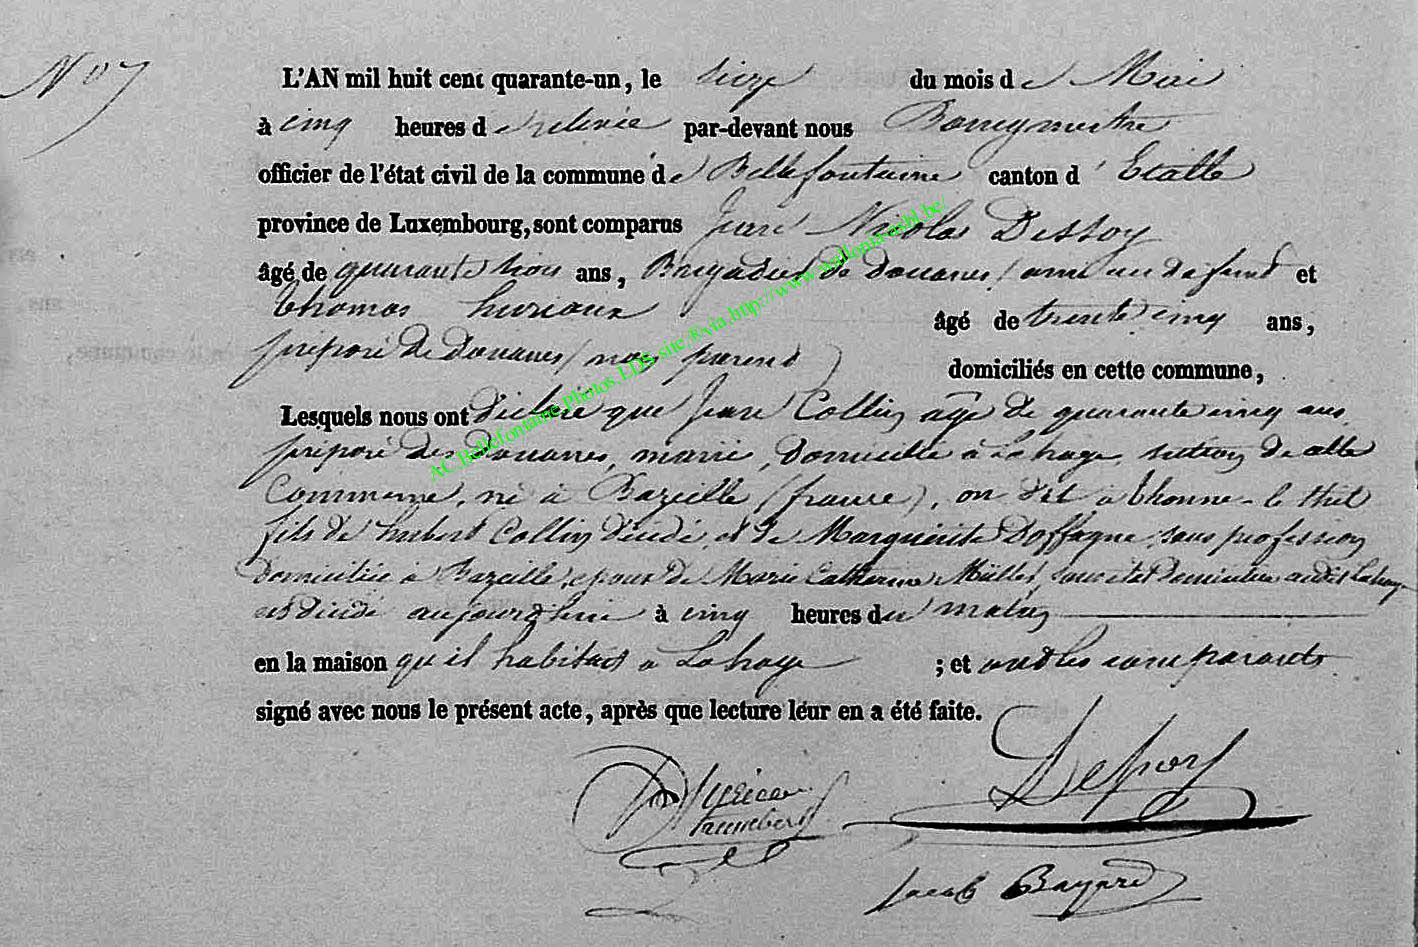 N° 7
L'AN mil huit cent quarante-un, le seize du mois de Mai
à cinq heures de relevée par-devant nous Bourgmestre
officier de l'état civil de la commune de Bellefontaine canton d' Etalle
province de Luxembourg, sont comparus Jean Nicolas Dessoy
âgé de quarante trois ans, Brigadier de douanes, ami du défunt et
Thomas Huriaux âgé de trente cinq ans,
préposé de douanes, non parent domiciliés en cette commune,
Lesquels nous ont déclaré que Jean Collin âgé de quarante cinq ans
préposé des Douanes, marié, domicilié à Lahage, section de cette
Commune, né à Bazeille (france), on dit à thonne-le thil
fils de hubert Collin décédé, et de Marguerite Doffagne, sans profession
domiciliée à Bazeille, epoux de Marie Catherine Müller, domiciliée audit Lahage
est décédé aujourd'hui à cinq heures du matin
en la maison qu'il habitait à Lahage ; et ont les comparants
signé avec nous le présent acte, après que lecture léur en a été faite.
Dessoy
Jacob Bayard
AC.Bellefontaine.Photos.LDS-site.&via.http://www.wallonia-asbl.be/